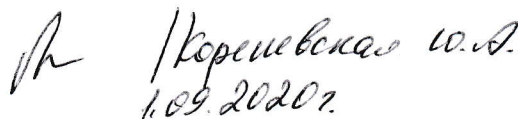 /Корешевская Ю.А.
1.09.2020г.